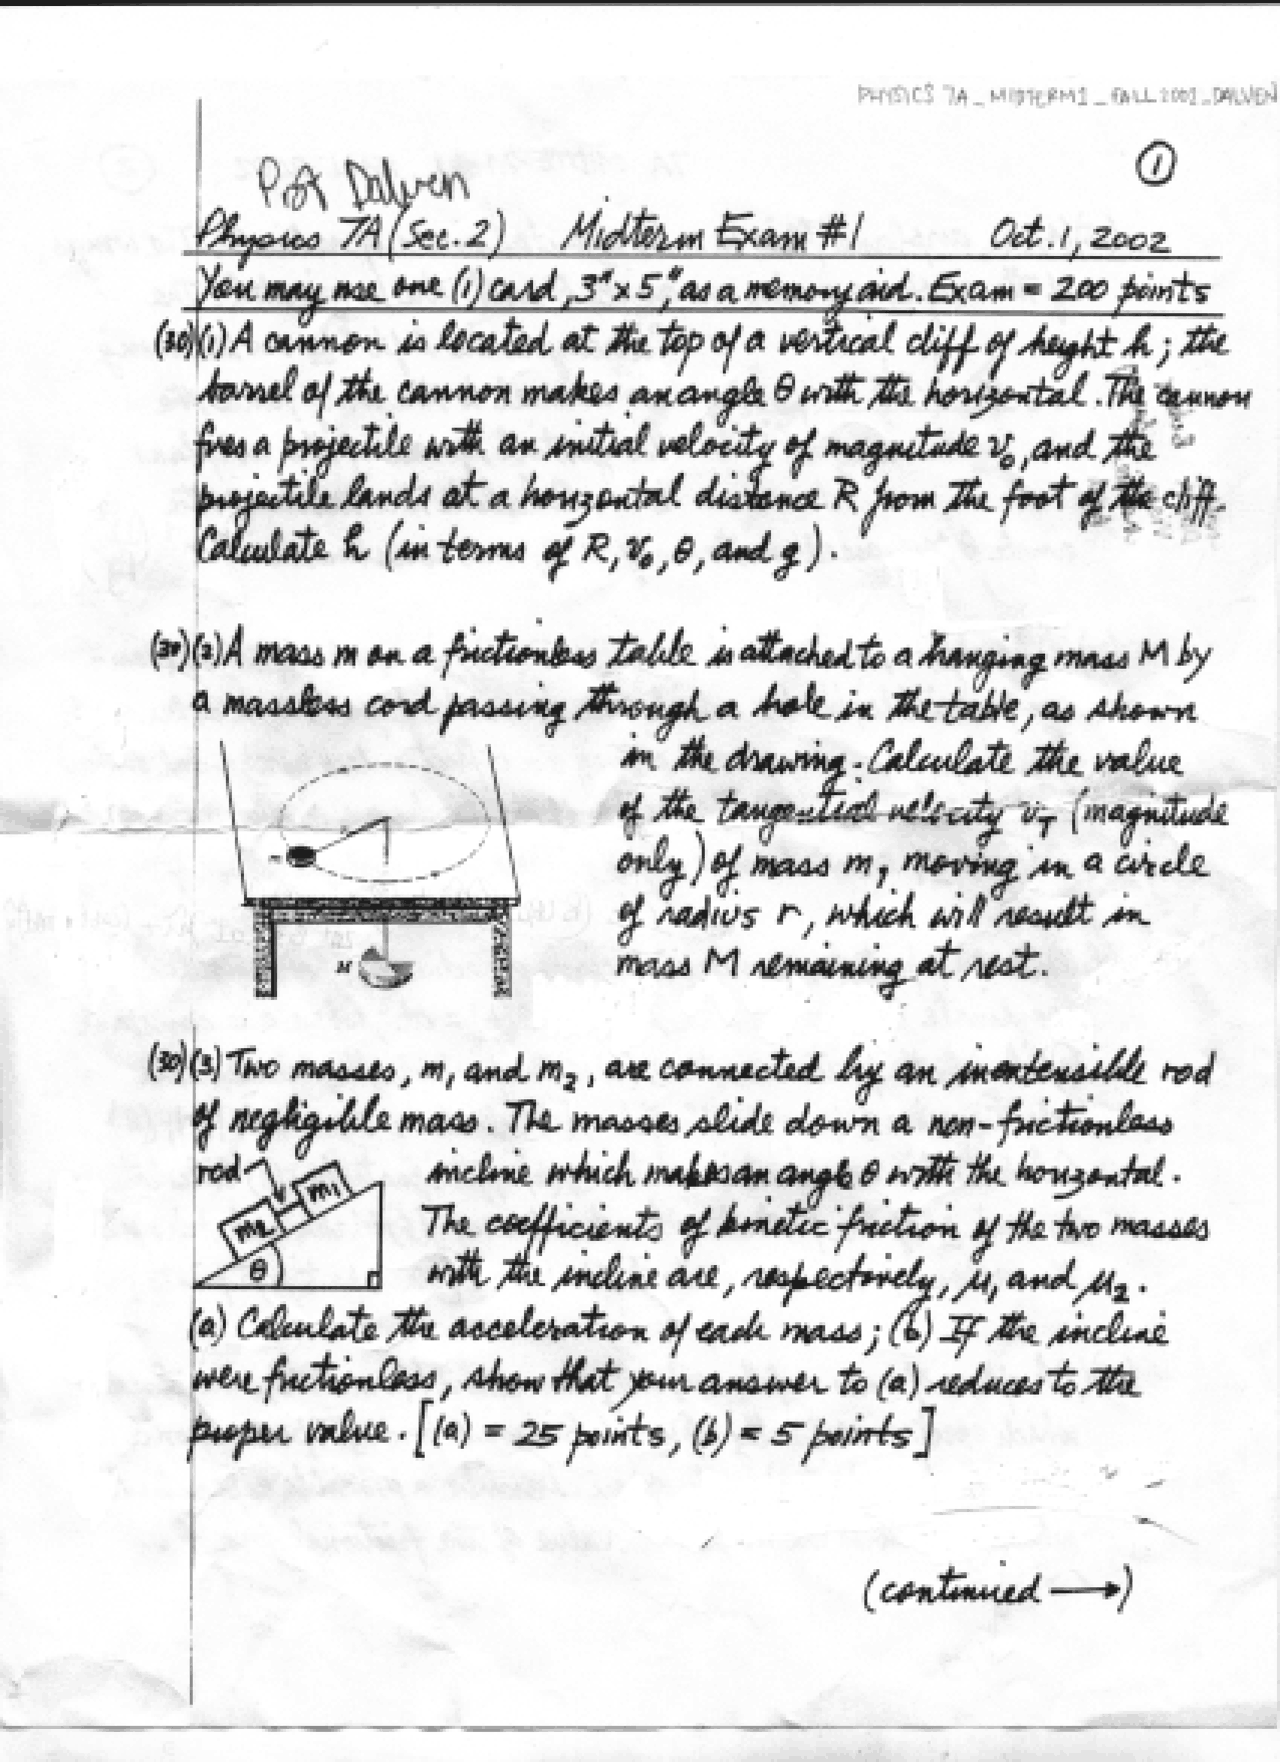 PHYSICS 7A_MIDTERM1_FALL2002_DALVEN
1
Prof Dalven
Physics 7A (Sec. 2) Midterm Exam #1 Oct. 1, 2002
You may use one (1) card, 3" x 5", as a memory aid. Exam = 200 points
(30)(1) A cannon is located at the top of a vertical cliff of height h; the
barrel of the cannon makes an angle θ with the horizontal. The cannon
fires a projectile with an initial velocity of magnitude v₀, and the
projectile lands at a horizontal distance R from the foot of the cliff.
Calculate h (in terms of R, v₀, θ, and g).
(30)(2) A mass m on a frictionless table is attached to a hanging mass M by
a massless cord passing through a hole in the table, as shown
in the drawing. Calculate the value
of the tangential velocity v_T (magnitude
only) of mass m, moving in a circle
of radius r, which will result in
mass M remaining at rest.
m
M
(30)(3) Two masses, m₁ and m₂, are connected by an inextensible rod
of negligible mass. The masses slide down a non-frictionless
incline which makes an angle θ with the horizontal.
The coefficients of kinetic friction of the two masses
with the incline are, respectively, μ₁ and μ₂.
rod
m₁
m₂
θ
(a) Calculate the acceleration of each mass; (b) If the incline
were frictionless, show that your answer to (a) reduces to the
proper value. [(a) = 25 points, (b) = 5 points]
(continued →)